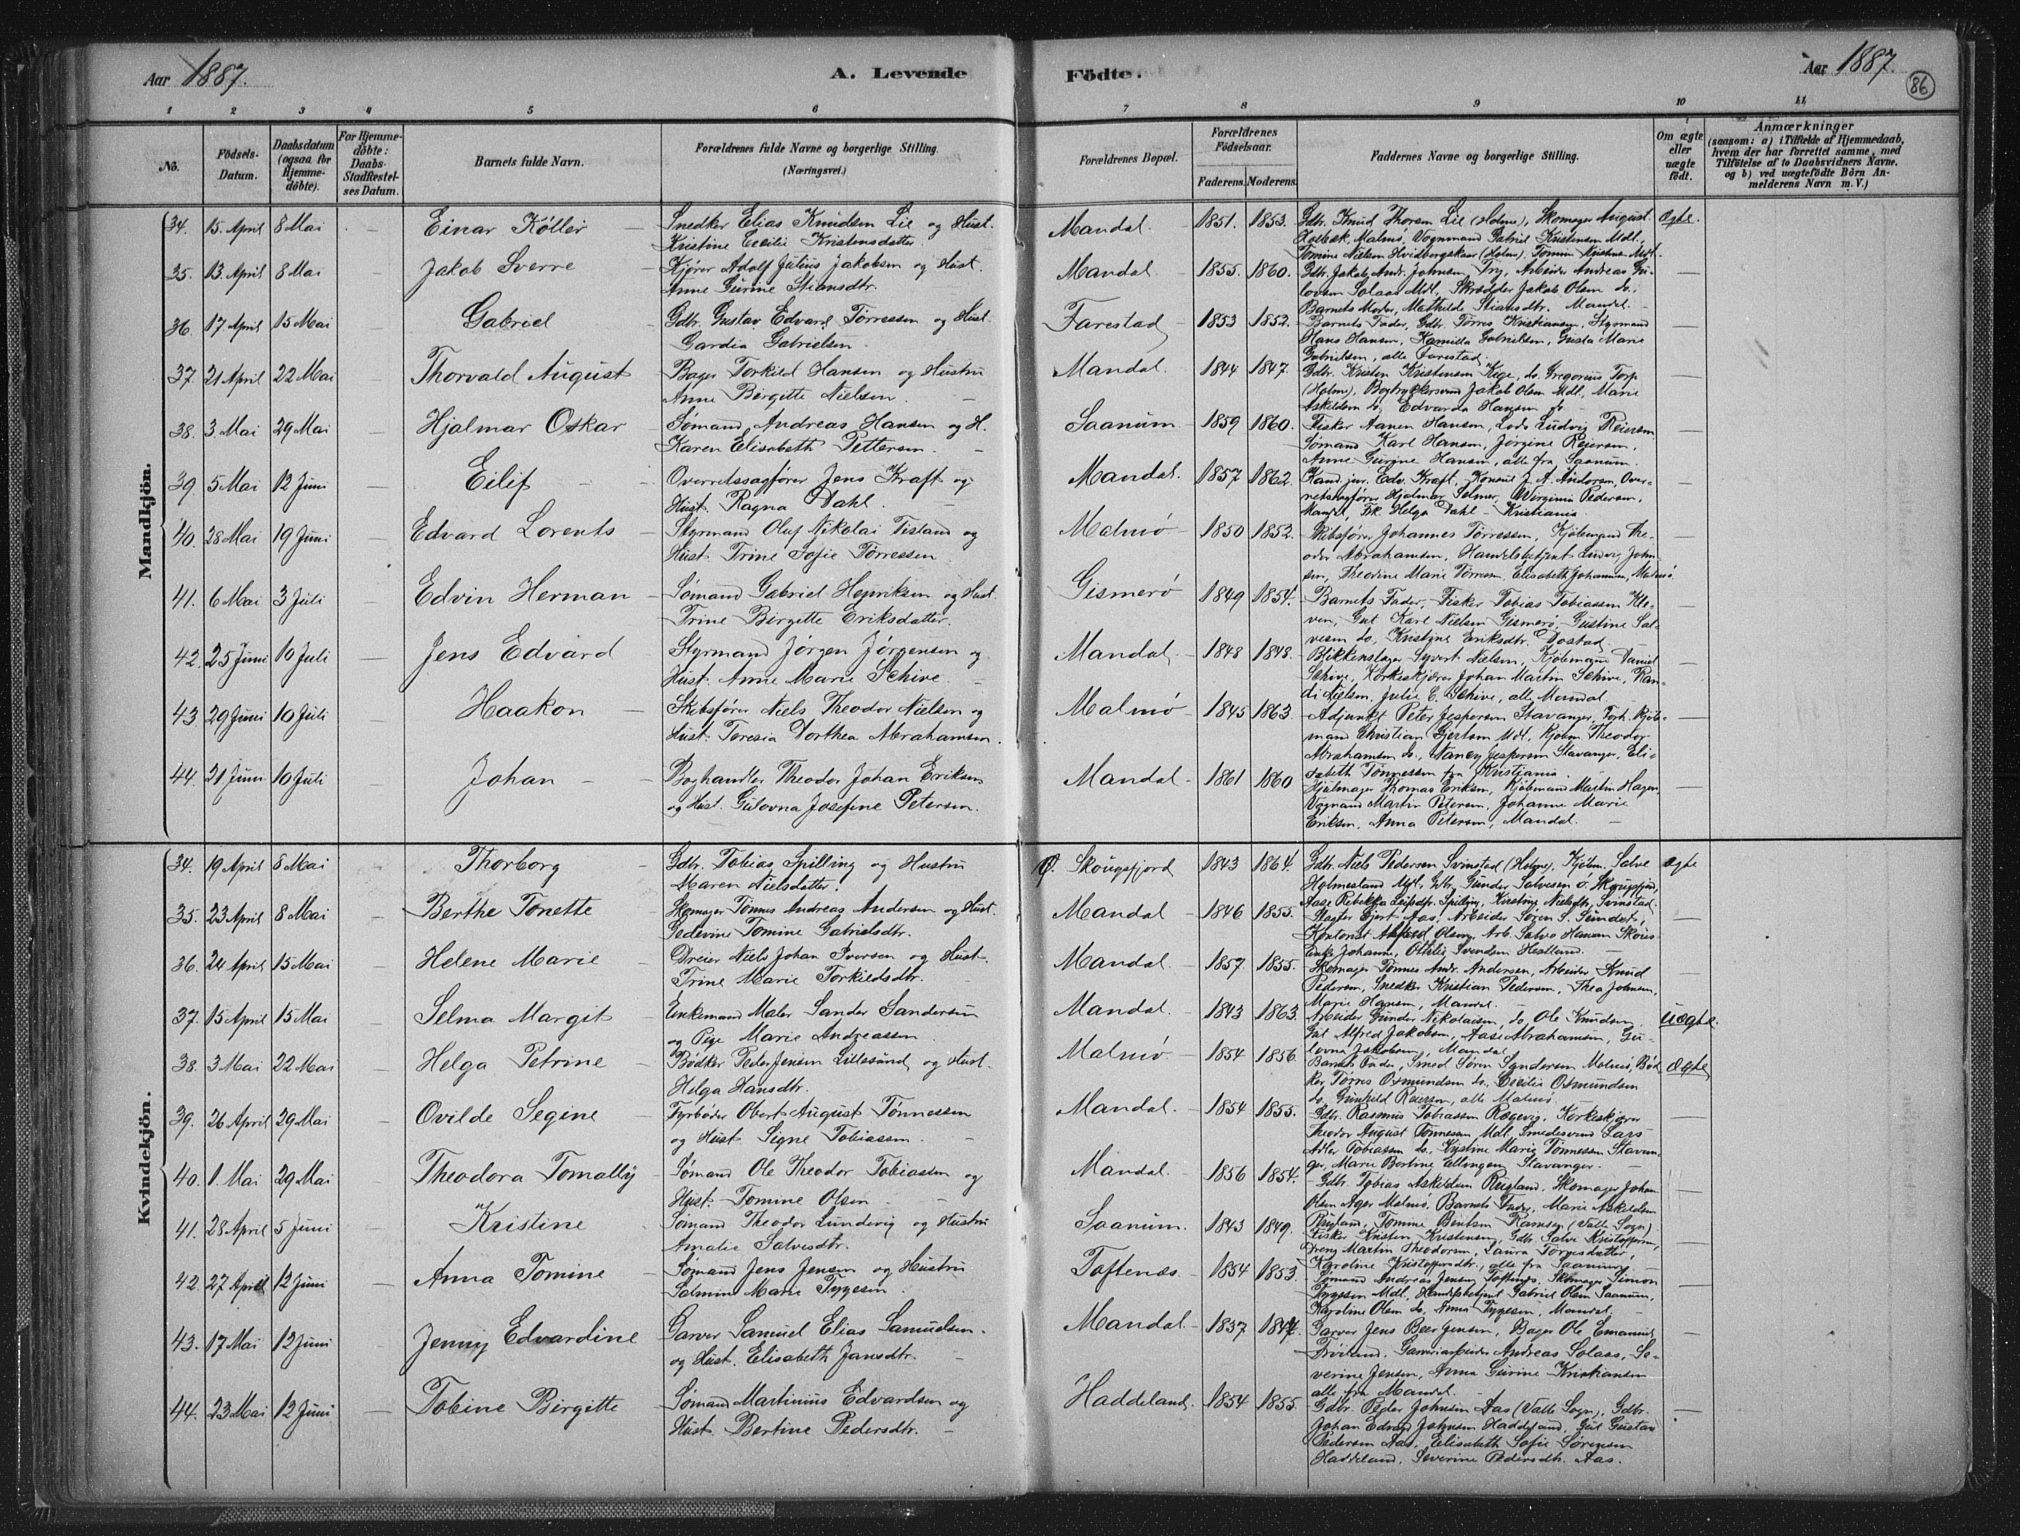 Aar 1887.
A. Levende
Födte.
Aar 1887.
86
1 2 3 4 5 6 7 8 9 10 11
No.
Födsels-Datum.
Daabsdatum (ogsaa for Hjemmedöbte).
For Hjemmedöbte: Daabs-Stadfæstelses Datum.
Barnets fulde Navn.
Forældrenes fulde Navne og borgerlige Stilling. (Næringsvei.)
Forældrenes Bopæl.
Forældrenes Födselsaar.
Faderens. Moderens.
Faddernes Navne og borgerlige Stilling.
Om ægte eller uægte födt.
Anmærkninger
(saasom: a) i Tilfælde af Hjemmedaab, hvem der har forrettet samme, med Tilföielse af to Daabsvidners Navne. og b) ved uægtefödte Börn Anmelderens Navn m. V.)
Mandkjön.
34. 15 April 8 Mai - Einar Köller
Snedker Elias Knudsen Lie og Hust.
Kristine Cecilie Kristensdatter
Mandal. 1851. 1853.
Gdbr. Knud Thorsen Lie (Holme), Skomager August
Holbæk, Malmö, Vognmand Gabriel Kristensen Mdl.,
Ægte
35. 13 April 8 Mai - Jakob Sverre
Kjörer Adolf Julius Jakobsen og Hust
Anne Gurine Stiansdtr.
Mandal - 1855. 1860.
Gdbr. Jakob Andr. Johnsen, Try, Arbeider Andreas
Solaas Mdl, Skrædder Jakob Olsen do.
Barnets Moder, Mathilde Stiansdtr. Mandal
36. 17 April 15 Mai - Gabriel
Gdbr. Gustav Edvard Törressen og Hust
Gardia Gabrielsen.
Farestad 1853 1852.
Barnets Fader, Gdbr. Törres Kristiansen, Styrmand
Hans Hansen, Kamilla Gabrielsen, Gusta Marie
Gabrielsen, alle Farestad.
37. 21 April 22 Mai - Thorvald August
Bager Torkild Hansen og Hustru
Anne Birgitte Nielsen.
Mandal. 1844 1847.
Gdbr. Kristen Kristensen Kige, do Gregorius Torp
(Holme), Bogtrykkersvend Jakob Olsen Mdl, Marie
Askildsen do, Edvarda Hansen do
38. 3 Mai 29 Mai - Hjalmar Oskar
Sömand Andreas Hansen og H.
Karen Elisabeth Pettersen.
Saanum - 1859 1860.
Fisker Aanen Hansen, Lods Ludvig Reiersen
Sömand Karl Hansen, Jörgine Reiersen,
Anne Gurine Hansen, alle fra Saanum.
39. 5 Mai 12 Juni - Eilif
Overretssagförer Jens Kraft og
Hust. Ragna Dahl.
Mandal. 1857 1862.
Kand. jur. Edv. Kraft, Konsul J. A. Andorsen, Over-
retssagförer Hjalmar Selmer, Virginia Pedersen,
Mandal, Frk. Helga Dahl - Kristiania
40. 28 Mai 19 Juni - Edvard Lorents
Styrmand Oluf Nikolai Tisland og
Hust. Trine Sofie Törressen
Malmö - 1850 1852.
Skibsförer Johannes Törressen, Kjöbmand The-
odor Abrahamsen, Handelsbetjent Ludvig John-
sen, Theodine Marie Törresen, Elisabeth Johannsen, Malmö
41. 6 Mai 3 Juli - Edvin Herman
Sömand Gabriel Henriksen og Hust.
Trine Birgitte Eriksdatter.
Gismerö - 1849 1854.
Barnets Fader, Fisker Tobias Tobiassen Kle-
ven, Gut Karl Nielsen Gismerö, Gustine Sal-
vesen do, Kristine Eriksdtr. Dostad
42. 25 Juni 10 Juli - Jens Edvard
Styrmand Jörgen Jörgensen og
Hust. Anne Marie Schive.
Mandal. 1848 1848.
Blikkenslager Syvert Nielsen, Kjöbmand Daniel
Schive, Korkeskjærer Johan Martin Schive, Ran-
di Nielsen, Julie E. Schive, alle Mandal
43 29 Juni 10 Juli - Haakon
Skibsförer Niels Theodor Nielsen og
Hust. Toresia Dorthea Abrahamsen.
Malmö - 1845 1863.
Adjunkt Peter Jespersen Stavanger, Kjöb-
mand Christian Gjertsen Mdl. Kjöbm. Theodor
Abrahamsen do, Nancy Jespersen Stavanger, Eli-
sabeth Tönnessen fra Kristiania.
44. 21 Juni 10 Juli - Johan
Boghandler Theodor Johan Eriksen
og Hust. Gulovna Josefine Petersen.
Mandal - 1861 1860
Hjulmager Thomas Eriksen, Kjöbmand Martin Hagen
Vognmand Martin Petersen, Johanne Marie
Eriksen, Anna Petersen, Mandal.
Kvindekjön.
34. 19 April 8 Mai - Thorborg
Gdbr. Tobias Spilling og Hustru
Maren Nielsdatter.
Ö. Skougsfjord 1843 1864.
Gdbr. Niels Pedersen Svinstad (Holme), Kjöbm. Salve
Holmesland Mdl, Gdbr. Gunder Salvesen ö. Skougsfjord,
Aase Rebekka Leifsdtr. Spilling, Kirstine Nielsdtr, Svinstad.
ægte
35. 23 April 8 Mai - Berthe Tonette
Skomager Tönnes Andreas Andersen og Hust.
Gedevine Tomine Gabrielsdtr.
Mandal - 1846 1855.
Slagter Gjort Aas, Arbeider Sören S. Sundet,
Kontorist Olsen, Arb. Salve Hansen
Enke Johanne, Ottilie Svendsen Hestlund
36. 24 April 15 Mai - Helene Marie
Dreier Niels Johan Iversen og Hust.
Trine Marie Torkildsdtr.
Mandal. 1857. 1855.
Skomager Tönnes Andr. Andersen, Arbeider Knud
Pedersen, Snedker Kristian Pedersen, Thea Johnsen,
Marie Hansen, Mandal.
37. 15 April 15 Mai - Selma Margit
Enkemand Maler Sander Sandersen
og Pige Marie Andreassen
Mandal 1843 1863.
Arbeider Gunder Nikolaisen, do Ole Knudsen
Gut Alfred Jakobsen, Aase Abrahamsen, Gu-
lovna Jakobsen, Mandal
Uægte.
38. 3 Mai 22 Mai - Helga Petrine
Bödker Peder Jensen Lillesund og Hust.
Helga Hansdtr.
Malmö. 1854 1856.
Barnets Fader, Smed Sören Syndersen Malmö, Böd-
ker Törres Osmundsen do, Cecilie Osmundsen
do, Gunhild Reiersen, alle Malmö.
Ægte
39. 26 April 29 Mai - Ovilde Segine
Fyrböder Obert August Tönnessen
og Hust Signe Tobiassen.
Mandal. 1854 1855.
Gdbr. Rasmus Tobiassen Rægevig, Korkeskjærer
Theodor August Tönnesen Mdl, Smedesvend Lars
Adler Tobiassen do, Kristine Marie Tönnessen Stavan-
ger, Marie Bertine Ellingsen Stavanger.
40. 1. Mai 29 Mai - Theodora Tomally
Sömand Ole Theodor Tobiassen og
Hust. Tomine Olsen
Mandal. 1856 1854.
Gdbr. Tobias Askildsen Rugland, Skomager Johan
Olsen Ager Malmö, Barnets Fader, Marie Askildsen
Rugland, Tomine Bentsen Ramsø (Valle Sogn)
41. 28 April 5 Juni - Kristine
Sömand Theodor Lundevig og Hustru
Amalie Salvesdtr.
Saanum. 1843 1849.
Fisker Kristen Kristensen, Gdbr. Salve Kristoffersen,
Dreng Martin Theodorsen, Laura Törresdatter,
Karoline Kristoffersdtr., alle fra Saanum
42. 27 April 12 Juni - Anna Tomine
Sömand Jens Jensen og Hustru
Salmine Marie Tygesen.
Toftenæs - 1854 1853.
Sömand Andreas Jensen Toftenæs, Skomager Simon
Tygesen Mdl, Handelsbetjent Gabriel Olsen Saanum,
Karoline Olsen do, Anna Tygesen, Mandal.
43. 17 Mai 12 Juni - Jenny Edvardine
Garver Samuel Elias Samuelsen
og Hust. Elisabeth Jansdtr.
Mandal - 1837 1844.
Garver Jens Beer Jensen, Bager Ole Emanuel
Fröiland, Garveriarbeider Andreas Solaas, Se-
verine Jensen, Anna Gurine Kristiansen
alle fra Mandal.
44. 23 Mai 12 Juni - Tobine Birgitte
Sömand Martinius Edvardsen og
Hust. Bertine Pedersdtr.
Haddeland. 1854 1855.
Gdbr. Peder Johnsen Aas (Valle Sogn), Gdbr.
Johan Edvard Johnsen Haddeland, Gut Gustav
Pedersen Aas, Elisabeth Sofie Sörensen
Haddeland, Severine Pedersdtr. Aas.